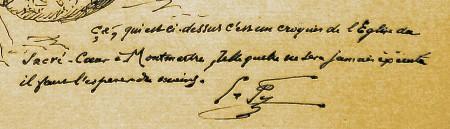 qui est ci-dessus c'est un croquis de l'Eglise du
Sacré-Cœur à Montmartre, telle qu'elle ne sera jamais exécutée
il faut l'espérer du moins.